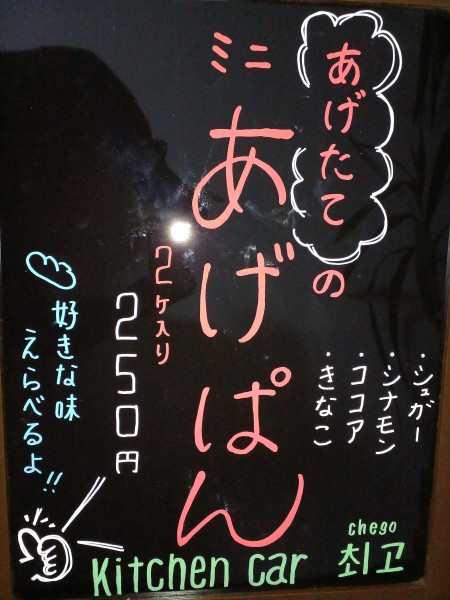 あげたての
ミニ
あげぱん
2ケ入り
250円
・シュガー
・シナモン
・ココア
・きなこ
好きな味
えらべるよ!!
chego
Kitchen car 최고